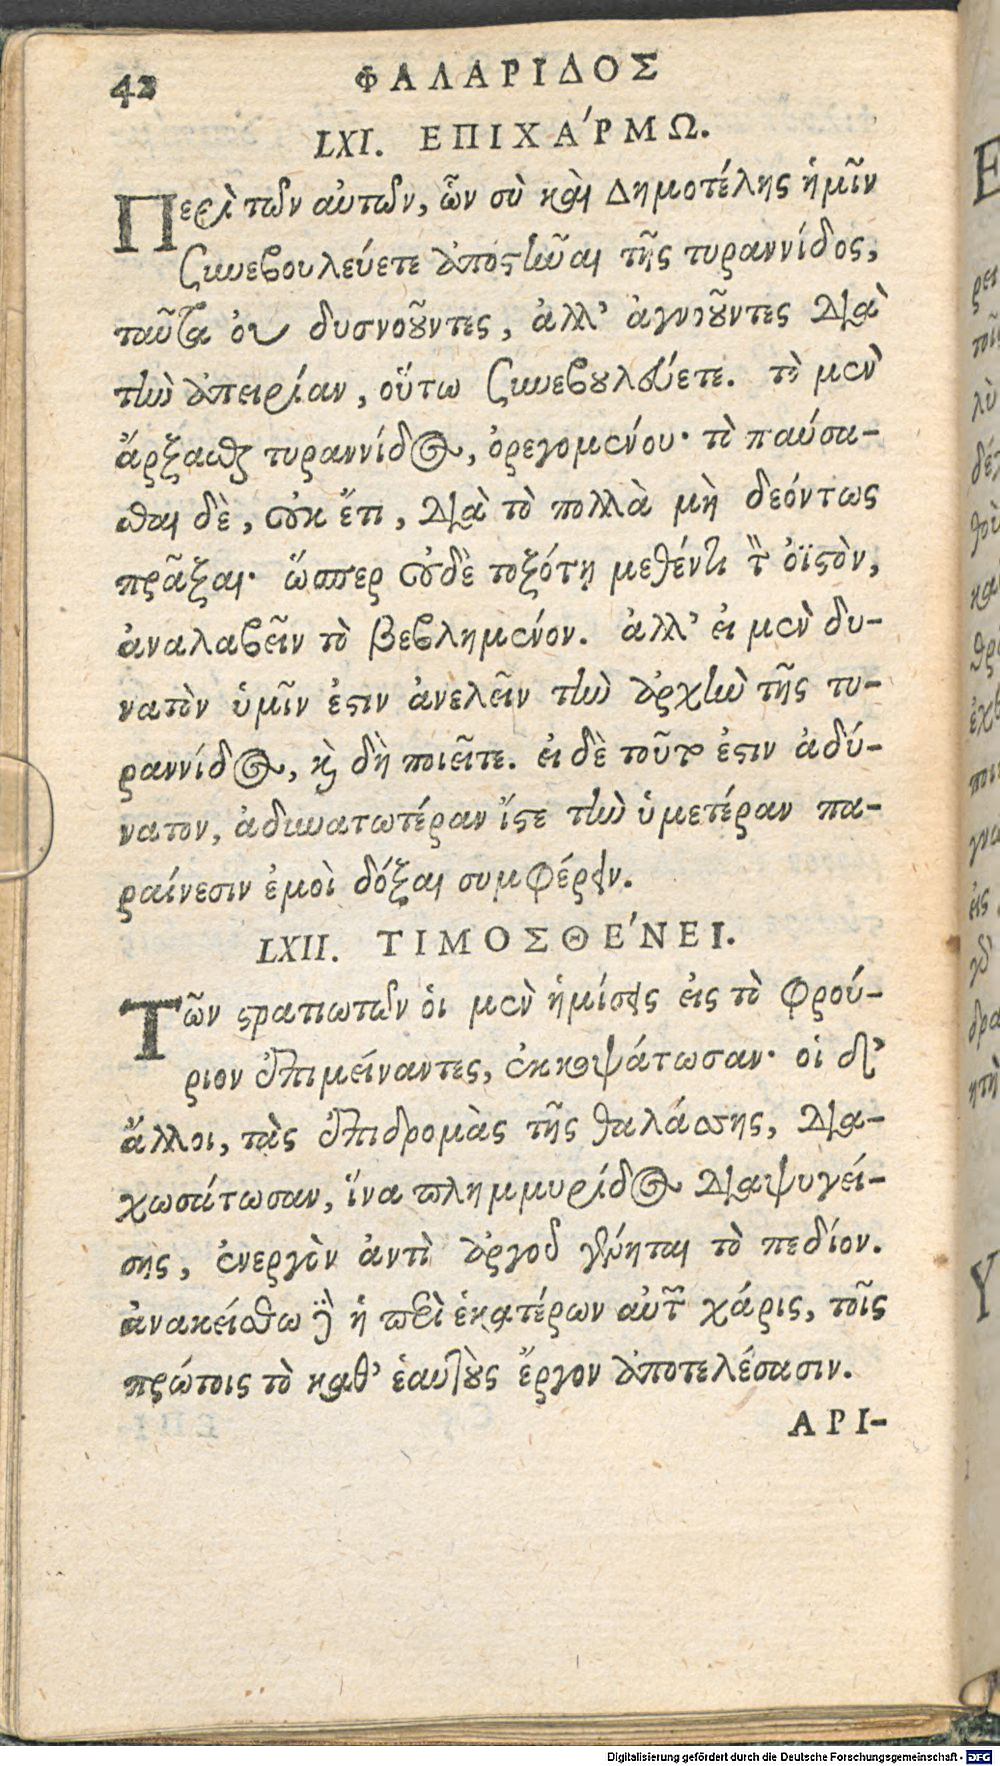 42 ΦΑΛΑΡΙΔΟΣ
LXI. ΕΠΙΧΑ΄ΡΜΩ.
Περὶ τῶν αὐτῶν, ὧν σὺ καὶ Δημοτέλης ἡμῖν
συνεβουλεύετε ἀποστῆναι τῆς τυραννίδος,
ταῦτα οὐ δυσνοοῦντες, ἀλλ' ἀγνοοῦντες διὰ
τὴν ἀπειρίαν, οὕτω συνεβουλεύετε. τὸ μὲν
ἄρξασθαι τυραννίδος, ὀρεγομένου· τὸ παύσα-
σθαι δὲ, οὐκ ἔτι, διὰ τὸ πολλὰ μὴ δεόντως
πρᾶξαι· ὥσπερ οὐδὲ τοξότῃ μεθέντι τὸν ὀϊστὸν,
ἀναλαβεῖν τὸ βεβλημένον. ἀλλ' εἰ μὲν δυ-
νατὸν ὑμῖν ἐστιν ἀνελεῖν τὴν ἀρχὴν τῆς τυ-
ραννίδος, καὶ δὴ ποιεῖτε. εἰ δὲ τοῦτο ἐστιν ἀδύ-
νατον, ἀδυνατωτέραν ἴστε τὴν ὑμετέραν πα-
ραίνεσιν ἐμοὶ δόξαι συμφέρειν.
LXII. ΤΙΜΟΣΘΕ΄ΝΕΙ.
Τῶν στρατιωτῶν οἱ μὲν ἡμίσεις εἰς τὸ φρού-
ριον ἐπιμείναντες, ἐκκοψάτωσαν· οἱ δ'
ἄλλοι, τὰς ἐπιδρομὰς τῆς θαλάσσης, δια-
χωσάτωσαν, ἵνα πλημμυρίδος διαψυγεί-
σης, ἐνεργὸν ἀντὶ ἀργοῦ γένηται τὸ πεδίον.
ἀνακείσθω δὲ ἡ περὶ ἑκατέρων αὐτῶν χάρις, τοῖς
πρώτοις τὸ καθ' ἑαυτοὺς ἔργον ἀποτελέσασιν.
ΑΡΙ-
Digitalisierung gefördert durch die Deutsche Forschungsgemeinschaft - DFG